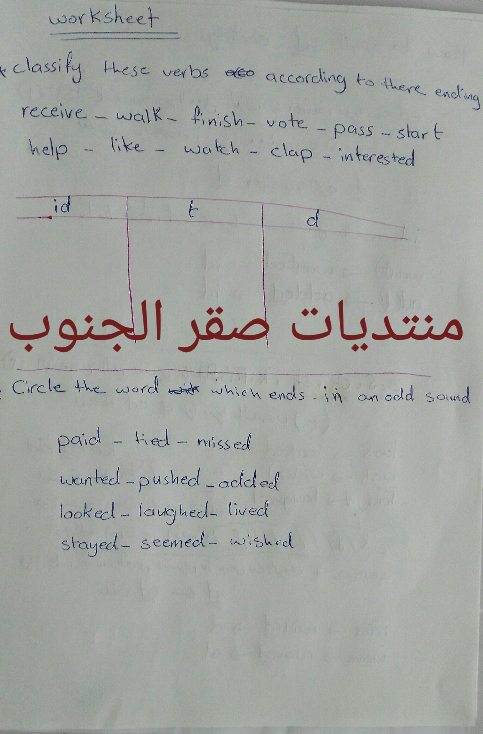 worksheet
* classify these verbs according to there ending
receive – walk – finish – vote – pass – start
help – like – watch – clap – interested
id t d
منتديات صقر الجنوب
: Circle the word which ends in an odd sound
paid – tied – missed
wanted – pushed – added
looked – laughed – lived
stayed – seemed – wished